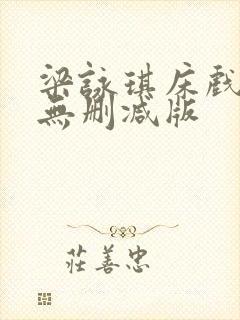 梁詠琪床戲
無刪減版
莊善忠